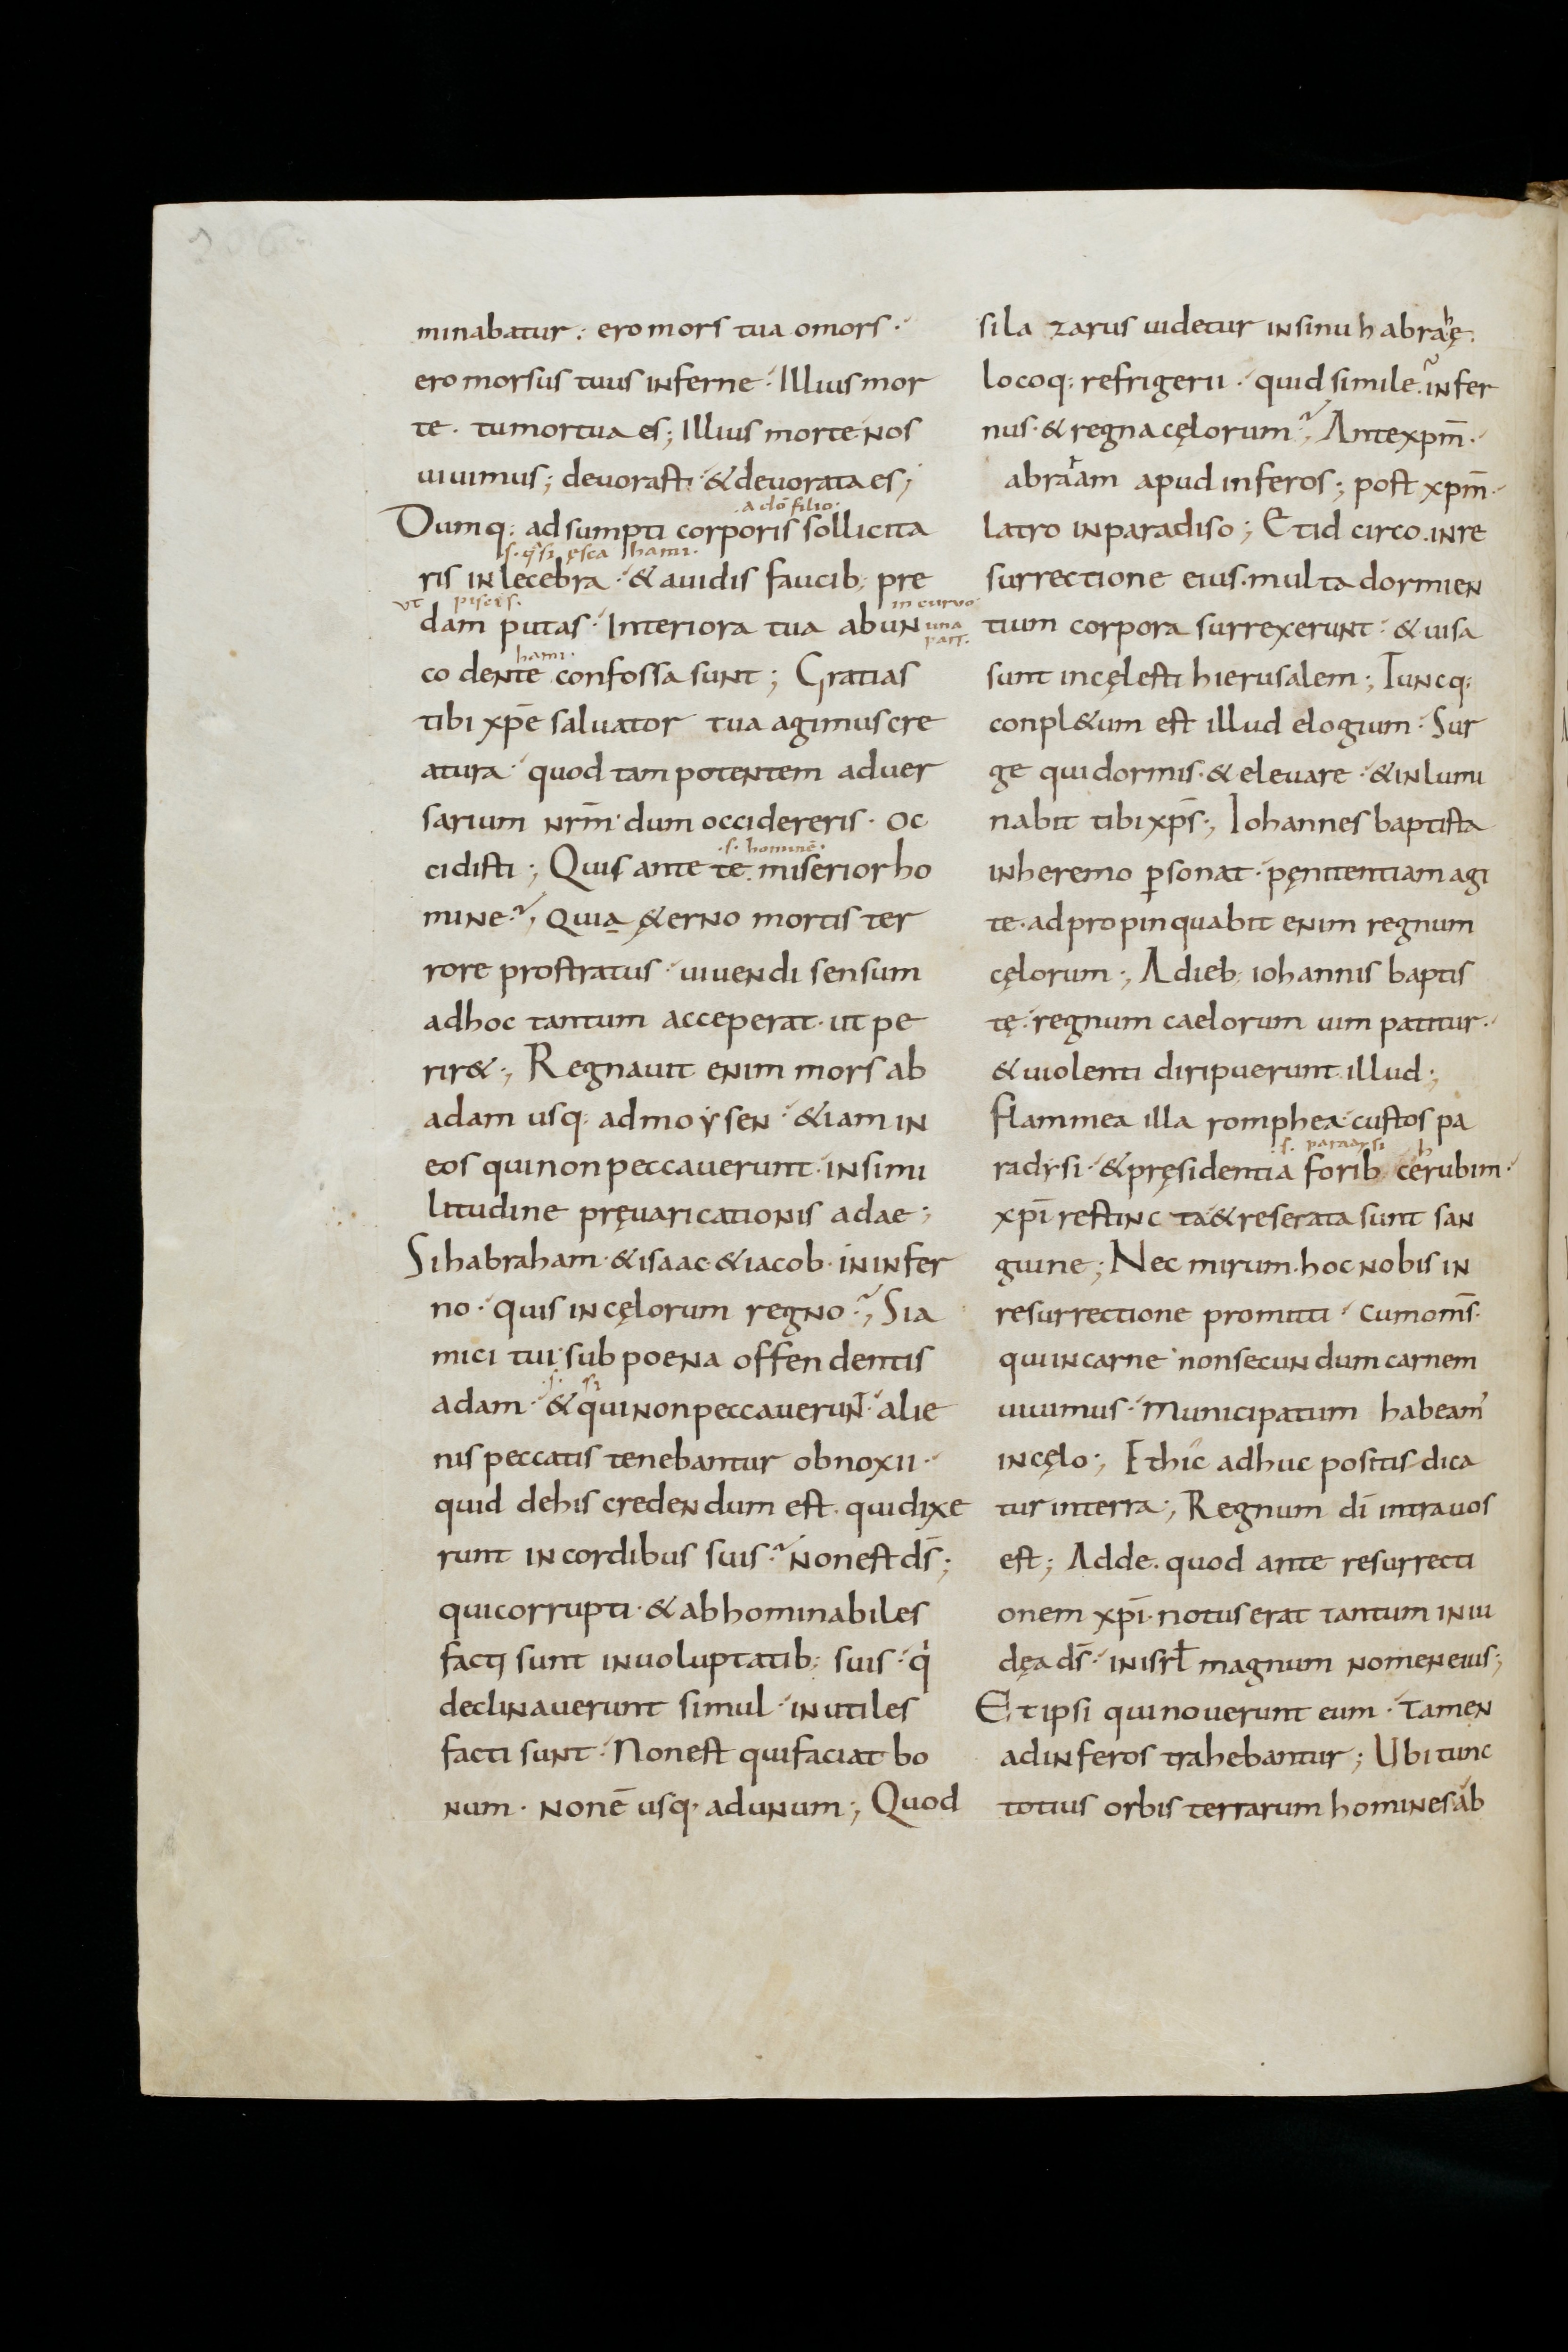 minabatur: ero mors tua o mors.
ero morsus tuus inferne. Illius mor
te. tu mortua es; Illius morte nos
uiuimus; deuorasti. & deuorata es;
.a dō filio.
Dumq: adsumpti corporis sollicita
s. q̄si esca hami.
ris inlecebra. & auidis faucib: pre
ut piscis. in curuo
dam putas. Interiora tua abun una
part.
hami.
co dente confossa sunt; Gratias
tibi xp̄e saluator tua agimus cre
atura. quod tam potentem aduer
sarium nr̄m dum occidereris. oc
.s. hominē.
cidisti; Quis ante te miserior ho
mine? Quia &erno mortis ter
rore prostratus. uiuendi sensum
ad hoc tantum acceperat. ut pe
rir&; Regnauit enim mors ab
adam usq: ad moysen. & iam in
eos qui non peccauerunt. in simi
litudine pręuaricationis adae;
Si habraham. & isaac. & iacob. in infer
no. quis in cęlorum regno? Si a
mici tui sub poena offendentis
.s. si
adam. & qui non peccauerunt. alie
nis peccatis tenebantur obnoxii.
quid de his credendum est. qui dixe
runt in cordibus suis? non est d̄s;
qui corrupti. & abhominabiles
facti sunt in uoluptatib: suis. q̇
declinauerunt simul. inutiles
facti sunt. Non est qui faciat bo
num. non ē usq: ad unum; Quod
si lazarus uidetur in sinu habrahę.
locoq: refrigerii. quid simile infer
nus. & regna cęlorum? Ante xp̄m.
abraam apud inferos; post xp̄m.
latro in paradiso; Et idcirco. in re
surrectione eius. multa dormien
tium corpora surrexerunt. & uisa
sunt in cęlesti hierusalem; Tuncq:
conpl&um est illud elogium. Sur
ge qui dormis. & eleuare. & inlumi
nabit tibi xp̄s; Iohannes baptista
in heremo p̱sonat. pęnitentiam agi
te. adpropinquabit enim regnum
cęlorum; A dieb: iohannis baptis
tę. regnum caelorum uim patitur.
& uiolenti diripuerunt illud;
flammea illa romphea. custos pa
s. paradysi h
radysi. & pręsidentia forib: cerubim.
xp̄i restincta & reserata sunt san
guine; Nec mirum. hoc nobis in
resurrectione promitti. cum om̄s.
qui in carne non secundum carnem
uiuimus. municipatum habeam'
in cęlo; Et hic adhuc positis dica
tur in terra; Regnum dī intra uos
est; Adde. quod ante resurrecti
onem xp̄i. notus erat tantum in iu
dęa d̄s. in isrł magnum nomen eius;
Et ipsi qui nouerunt eum. tamen
ad inferos trahebantur; Ubi tunc
totius orbis terrarum homines ab